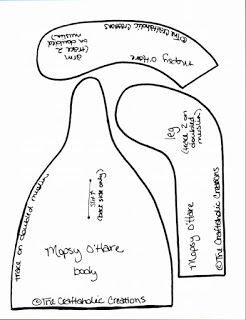 arm
(trace 2
on doubled
muslin)
Mopsy O'Hare
©The Craftaholic Creations
leg
(trace 2 on
doubled
muslin)
Mopsy O'Hare
©The Craftaholic Creations
trace on doubled muslin
slit
(back side only)
Mopsy O'Hare
body
©The Craftaholic Creations